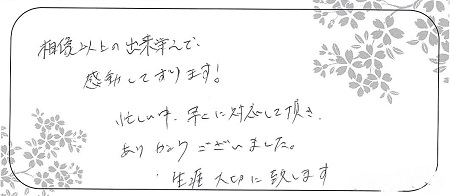 想像以上の出来栄えで、
感動しております!
忙しい中、早くに対応して頂き、
ありがとうございました。
生涯大切に致します